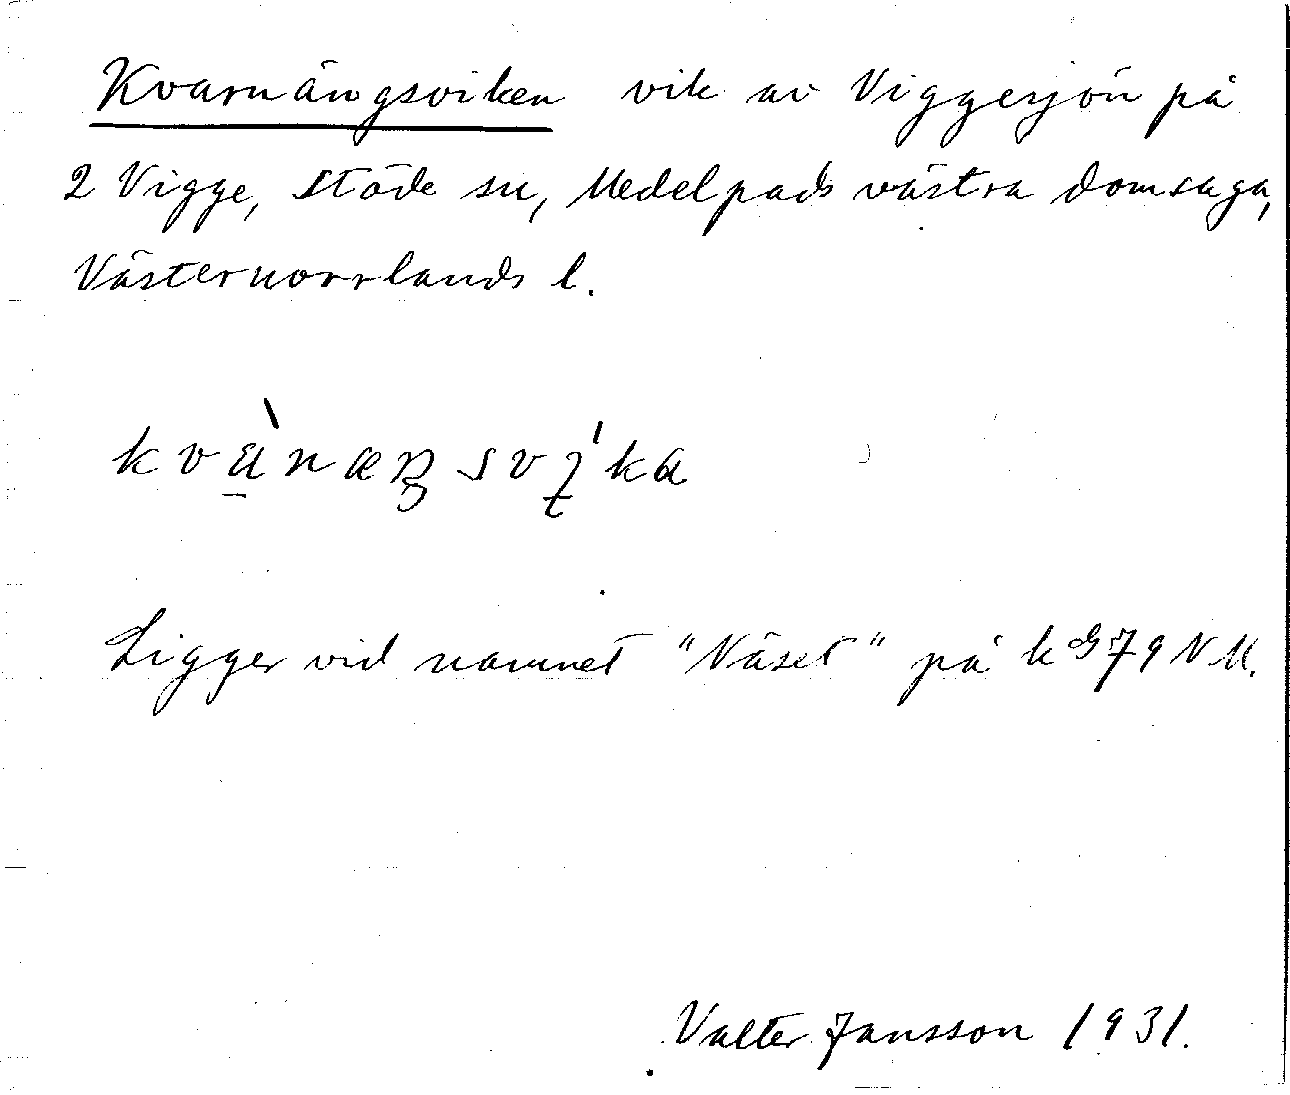 Kvarnängsviken vik av Viggesjön på
2 Vigge, Stöde sn, Medelpads västra domsaga,
Västernorrlands l.
kvànæŋsvi̱'ka
Ligger vid namnet "Näset" på k 79 NM.
Valter Jansson 1931.